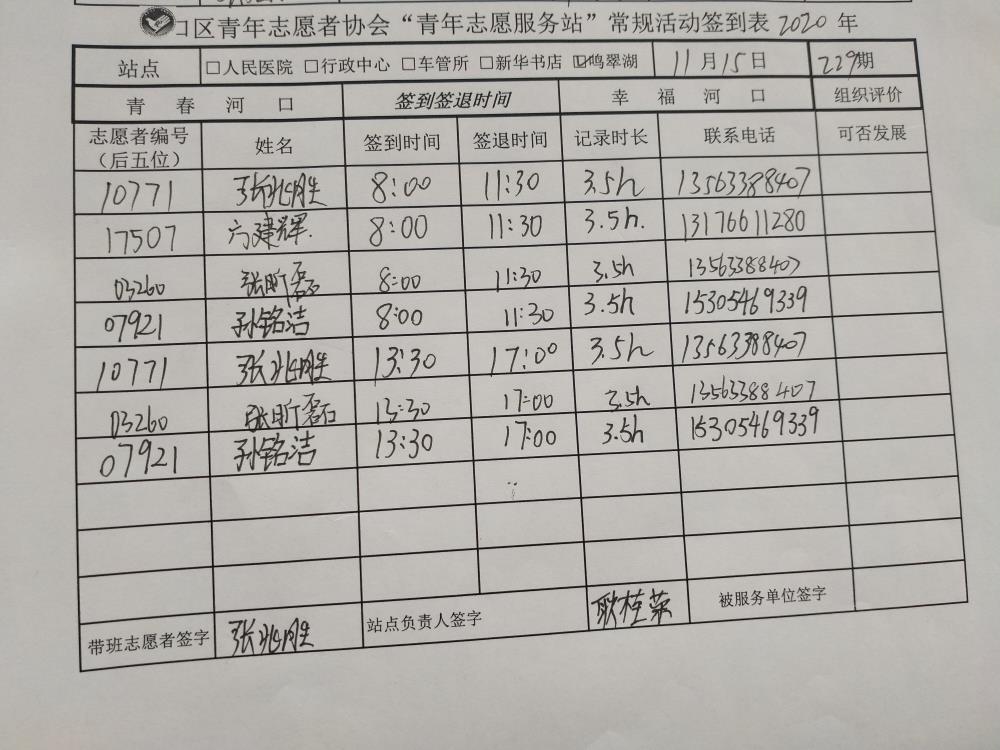 口区青年志愿者协会“青年志愿服务站”常规活动签到表 2020 年
站点 □人民医院 □行政中心 □车管所 □新华书店 ☑鸣翠湖 11月15日 229期
青春河口 签到签退时间 幸福河口 组织评价
志愿者编号（后五位） 姓名 签到时间 签退时间 记录时长 联系电话 可否发展
10771 张兆胜 8:00 11:30 3.5h 13563388407
17507 方建辉. 8:00 11:30 3.5h. 13176611280
03260 张昕磊 8:00 11:30 3.5h 13563388407
07921 孙铭洁 8:00 11:30 3.5h 15305469339
10771 张兆胜 13:30 17:00 3.5h 13563388407
03260 张昕磊 13:30 17:00 3.5h 13563388407
07921 孙铭洁 13:30 17:00 3.5h 15305469339
带班志愿者签字 张兆胜 站点负责人签字 耿桂荣 被服务单位签字